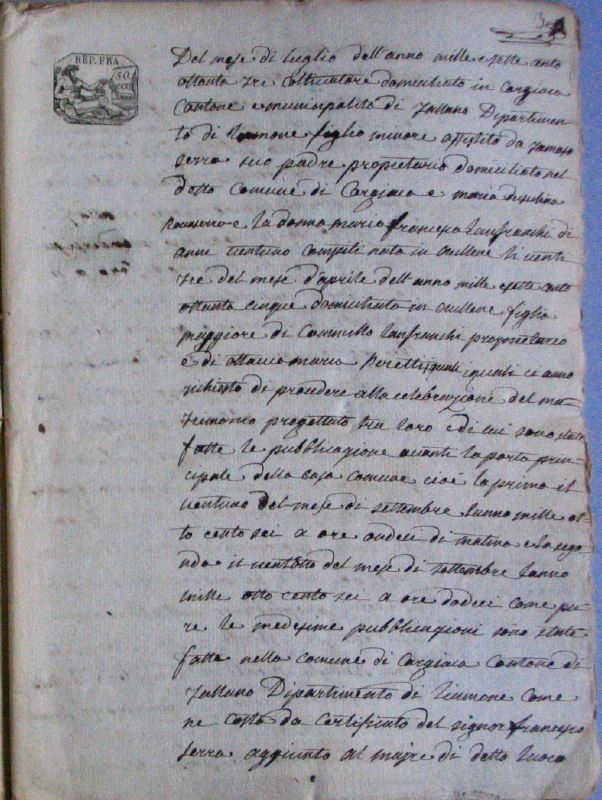 3
REP. FRA.
50
cen
Del mese di luglio dell'anno mille e sette cento
ottanta tre coltivatore domiciliato in Cargiaca
Cantone e municipalità di Tallano Dipartimen
to di Liamone figlio minore assistito da
serra suo padre propietario domiciliato nel
detto Comune di Cargiaca e maria
e la donna maria francesca lanfranchi di
anni ventuno compiti nata in aullene li venti
tre del mese d'aprile dell'anno mille e sette cento
ottanta cinque domiciliata in aullene figlia
maggiore di Cammillo lanfranchi proprietario
e di maria Peretti quali ci anno
richiesto di procedere alla celebrazione del ma
trimonio progettato tra loro e di cui sono state
fatte le pubblicazione avanti la porta prin
cipale della casa comune cioè la prima il
ventuno del mese di settembre l'anno mille ot
to cento sei a ore undeci di matina e la segon
da il ventotto del mese di settembre l'anno
mille otto cento sei a ore dodeci come pu
re le medesime pubblicazioni sono state
fatte nella comune di Cargiaca Cantone di
Tallano Dipartimento di Liamone come
ne costa da certificato del signor francesco
serra aggiunto al maire di detto luoco